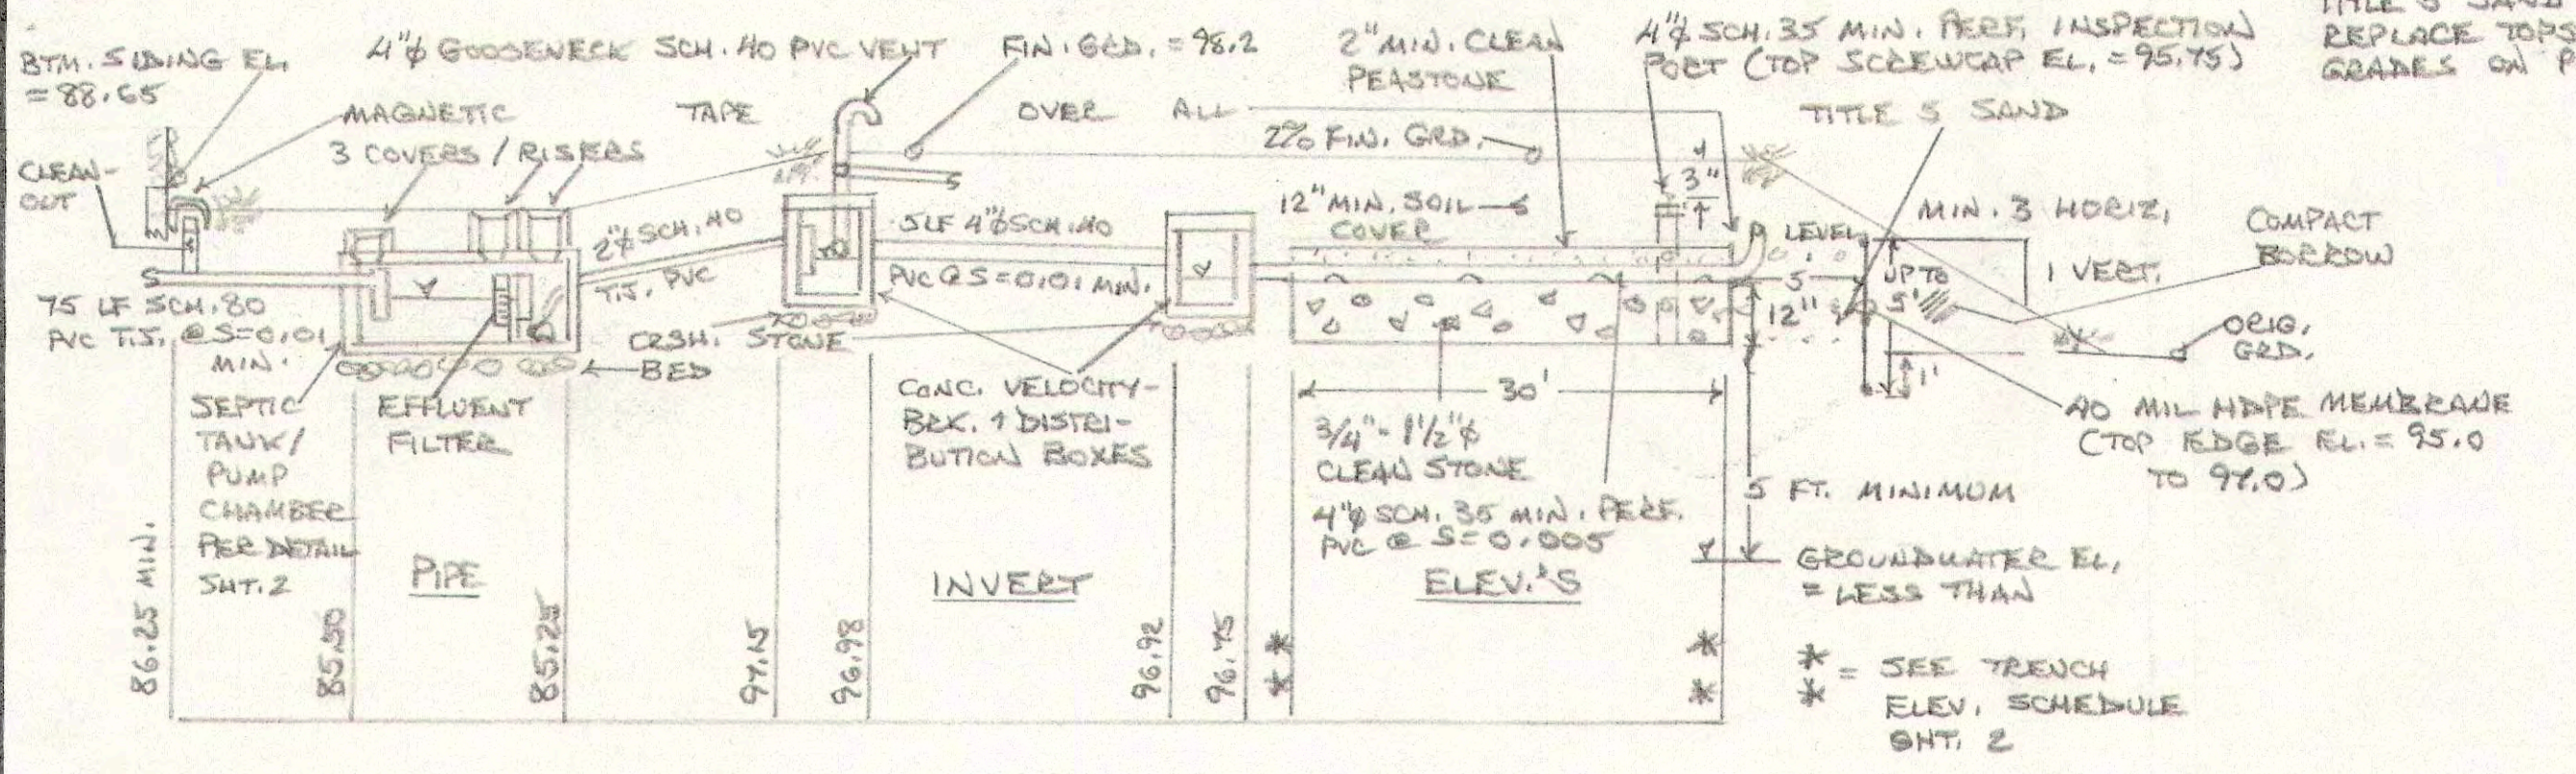 BTM. SIDING EL.
= 88.65
4"ϕ GOOSENECK SCH. 40 PVC VENT
FIN. GRD. = 98.2
2" MIN. CLEAN
PEASTONE
4"ϕ SCH. 35 MIN. PERF. INSPECTION
PORT (TOP SCREWCAP EL. = 95.75)
TITLE 5 SAND
REPLACE TOPS
GRADES ON P
MAGNETIC TAPE OVER ALL
3 COVERS / RISERS
2% FIN. GRD.
TITLE 5 SAND
CLEAN-
OUT
2"ϕ SCH. 40
T.J. PVC
5 LF 4"ϕ SCH. 40
PVC @ S=0.01 MIN.
12" MIN. SOIL
COVER
3"
LEVEL
5'
12"
UP TO
5'
MIN. 3 HORIZ.
1 VERT.
COMPACT
BORROW
ORIG.
GRD.
1'
75 LF SCH. 80
PVC T.J. @ S=0.01
MIN.
CRSH. STONE
BED
SEPTIC
TANK/
PUMP
CHAMBER
PER DETAIL
SHT. 2
EFFLUENT
FILTER
CONC. VELOCITY-
BRK. & DISTRI-
BUTION BOXES
30'
3/4"- 1 1/2"ϕ
CLEAN STONE
4"ϕ SCH. 35 MIN. PERF.
PVC @ S=0.005
40 MIL HDPE MEMBRANE
(TOP EDGE EL. = 95.0
TO 97.0)
5 FT. MINIMUM
GROUNDWATER EL.
= LESS THAN
PIPE INVERT ELEV.'S
86.25 MIN.
85.50
85.25
97.15
96.98
96.92
96.75
* *
* *
* * = SEE TRENCH
ELEV. SCHEDULE
SHT. 2